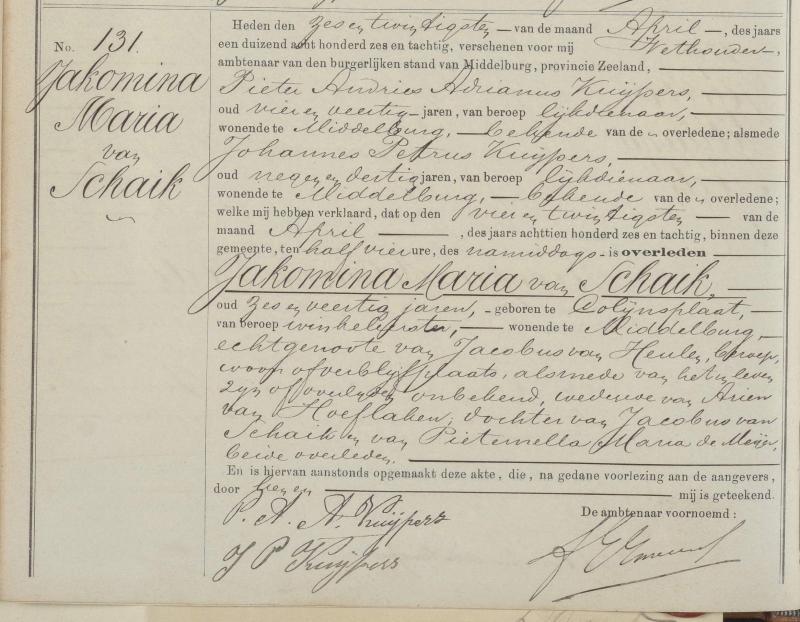 No. 131.
Jakomina
Maria
van
Schaik
Heden den zes en twintigsten van de maand April, des jaars
een duizend acht honderd zes en tachtig, verschenen voor mij Wethouder,
ambtenaar van den burgerlijken stand van Middelburg, provincie Zeeland,
Pieter Andries Adrianus Kuijpers,
oud vier en veertig jaren, van beroep lijkdienaar,
wonende te Middelburg, bekende van de overledene; alsmede
Johannes Petrus Kuijpers,
oud negen en dertig jaren, van beroep lijkdienaar,
wonende te Middelburg, bekende van de overledene;
welke mij hebben verklaard, dat op den vier en twintigsten van de
maand April, des jaars achttien honderd zes en tachtig, binnen deze
gemeente, ten half vier ure, des namiddags is overleden
Jakomina Maria van Schaik,
oud zes en veertig jaren, geboren te Colijnsplaat,
van beroep winkelierster, wonende te Middelburg,
echtgenoote van Jacobus van Heulen, beroep,
woon of verblijfplaats, alsmede van het in leven
zijn of overlijden onbekend, weduwe van Arien
van Hoeflaken; dochter van Jacobus van
Schaik en van Pieternella Maria de Meijer,
beide overleden.
En is hiervan aanstonds opgemaakt deze akte, die, na gedane voorlezing aan de aangevers,
door hen en mij is geteekend.
De ambtenaar voornoemd:
P. A. A. Kuijpers
J P Kuijpers